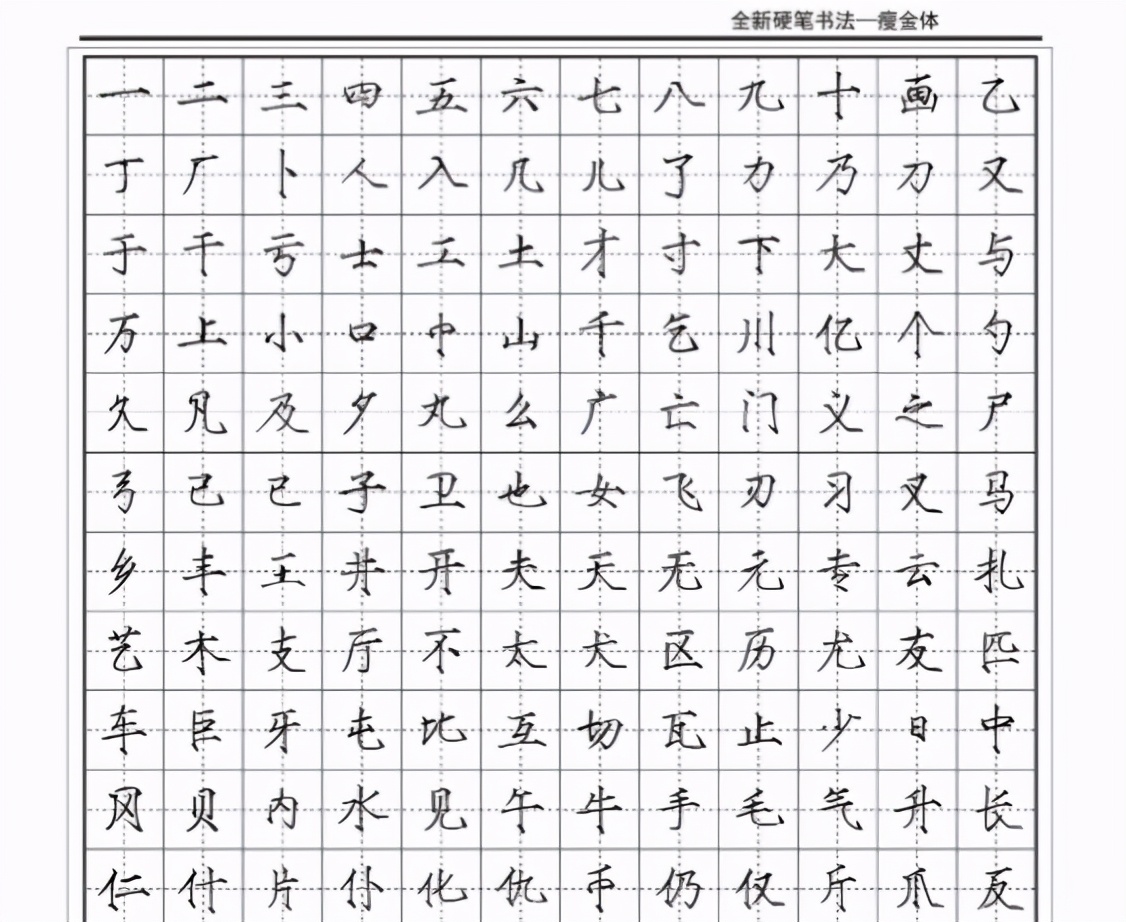 全新硬笔书法一瘦金体
一二三四五六七八九十画乙
丁厂卜人入几儿了力乃刀又
于干亏士工土才寸下大丈与
万上小口巾山千乞川亿个勺
久凡及夕丸么广亡门义之尸
弓己已子卫也女飞刃习叉马
乡丰王井开夫天无元专云扎
艺木支厅不太犬区历尤友匹
车巨牙屯比互切瓦止少日中
冈贝内水见午牛手毛气升长
仁什片仆化仇币仍仅斤爪反